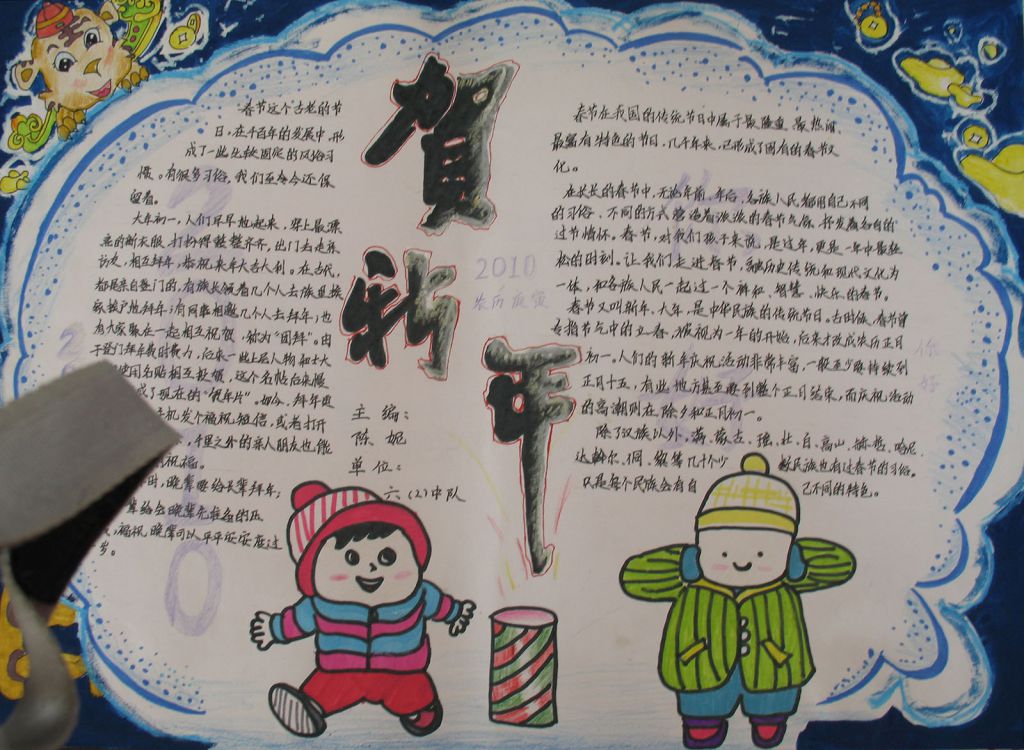 春节这个古老的节
日,在千百年的发展中,形
成了一些比较固定的风俗习
惯。有很多习俗,我们至今还保
留着。
大年初一,人们早早起来,穿上最漂
亮的新衣服,打扮得整整齐齐,出门去走亲
访友,相互拜年,恭祝来年大吉大利。在古代,
都是亲自登门的,有族长领着几个人去挨
家挨户地拜年;有同事相邀几个人去拜年;也
有大家聚在一起相互祝贺,称为"团拜"。由
于登门拜年费时费力,后来一些上层人物和士大
使用名贴相互投贺,这个名帖后来慢
成了现在的"贺年片"。如今,拜年进
手机发个福祝短信,或者打开
千里之外的亲人朋友也能
的祝福。
时,晚辈要给长辈拜年;
辈给会晚辈先准备的压
福祝晚辈可以平平安安度过
岁。
賀
新
年
2010
农历庚寅
主编:
陈妮
单位:
六(2)中队
春节在我国的传统节日中属于最隆重、最热闹、
最富有特色的节日,几千年来,已形成了固有的春节文
化。
在长长的春节中,无论年前、年后,各族人民都用自己不同
的习俗、不同的方式营造着浓浓的春节气氛,抒发着各自的
过节情怀。春节,对我们孩子来说,是过年,更是一年中最轻
松的时刻。让我们走进春节,融历史传统和现代文化为
一体,和各族人民一起过一个祥和、智慧、快乐的春节。
春节又叫新年、大年,是中华民族的传统节日。古时候,春节曾
专指节气中的立春,被视为一年的开始,后来才改成农历正月
初一。人们的新年庆祝活动非常丰富,一般至少要持续到
正月十五,有些地方甚至要到整个正月结束,而庆祝活动
的高潮则在除夕和正月初一。
除了汉族以外,满、蒙古、瑶、壮、白、高山、赫哲、哈尼、
达斡尔、侗、黎等几十个少
数民族也有过春节的习俗。
只是每个民族会有自
己不同的特色。
你
好